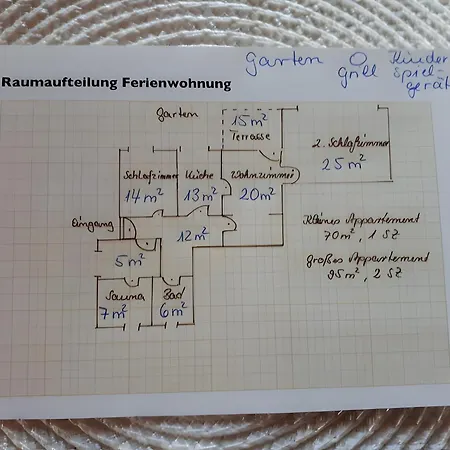 Garten O Kinder
Grill spiel-
gerät
Raumaufteilung Ferienwohnung
Garten
15 m²
Terrasse
2. Schlafzimmer
25 m²
Schlafzimmer
14 m²
Küche
13 m²
Wohnzimmer
20 m²
Eingang
12 m²
5 m²
Sauna
7 m²
Bad
6 m²
Kleines Appartement
70 m², 1 SZ
großes Appartement
95 m², 2 SZ